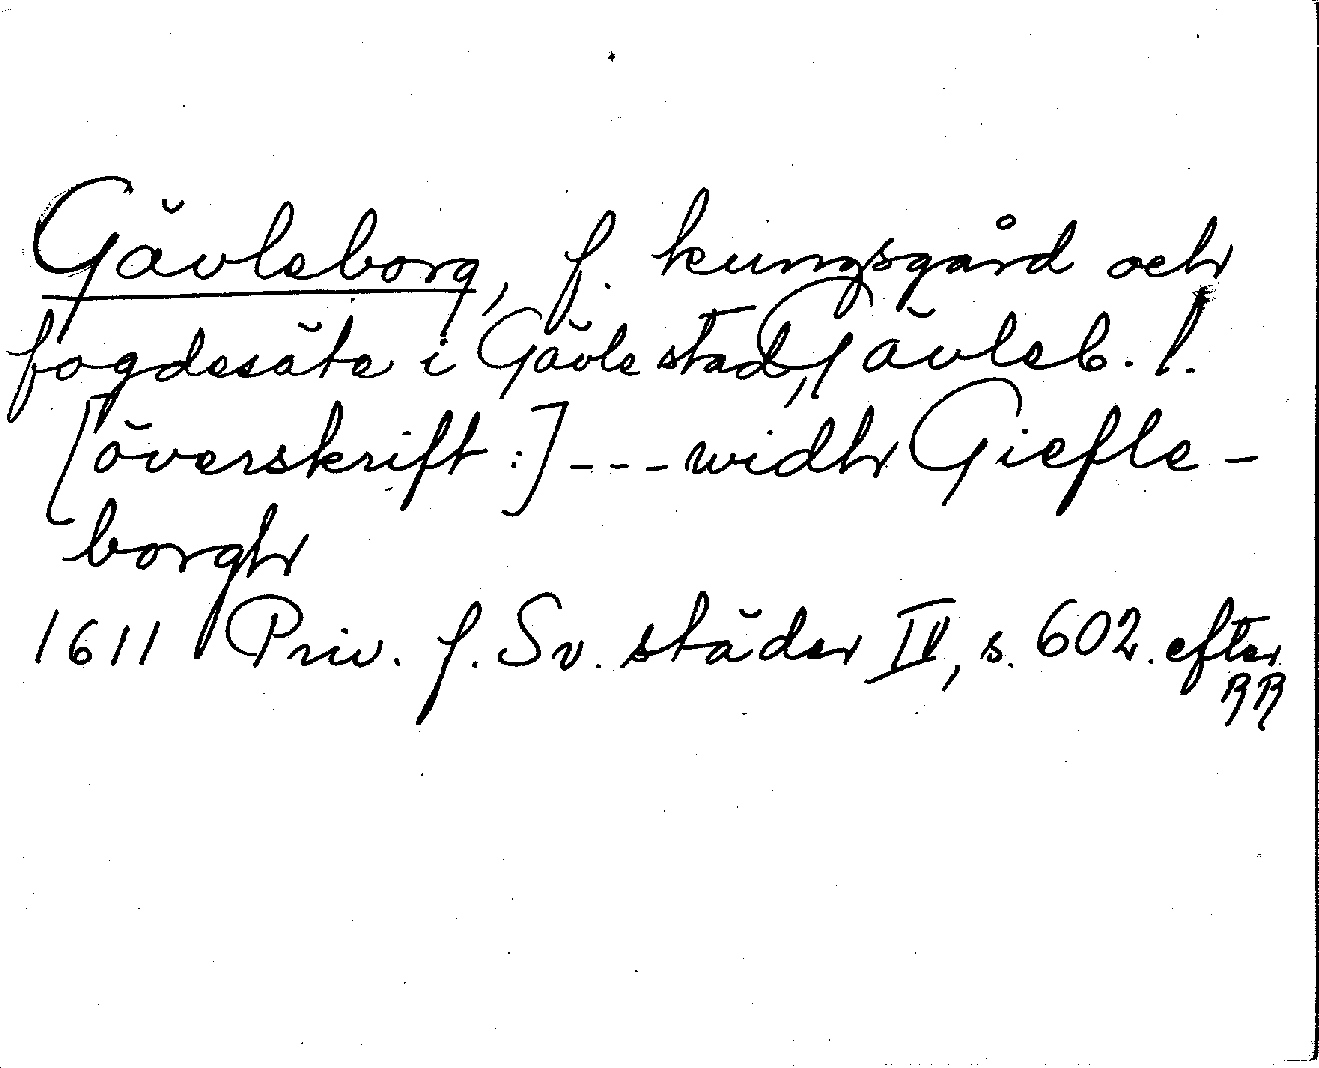 Gävleborg, f. kungsgård och
fogdesäte i Gävle stad, Gävleb. l.
[överskrift:] --- widh Giefle-
borgh
1611 Priv. f. Sv. städer IV, s. 602. efter
RR